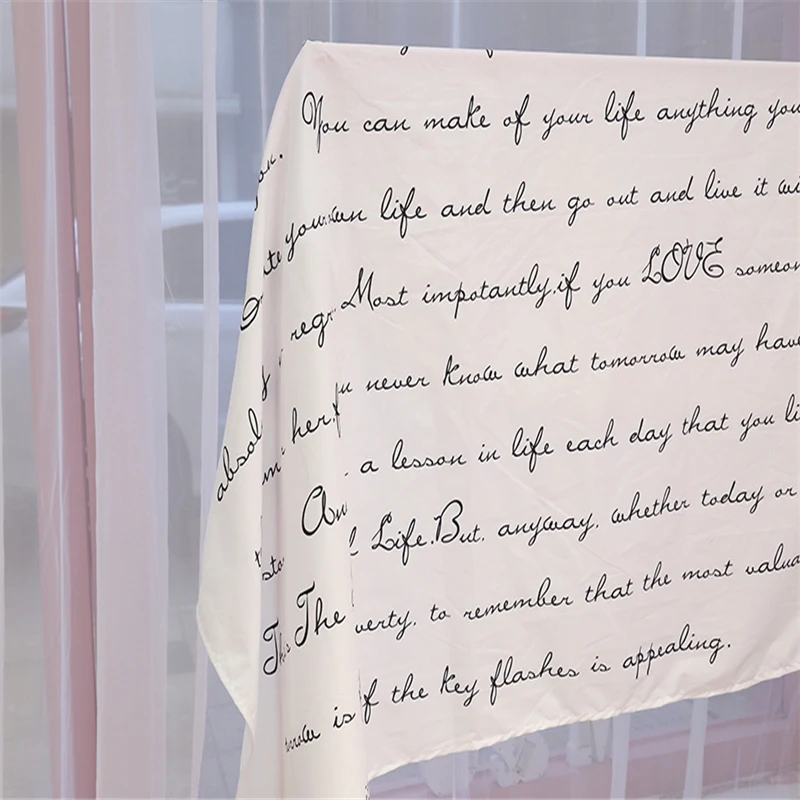 You can make of your life anything you
your own life and then go out and live it wi
regr Most impotantly.if you LOVE someon
her.f u never know what tomorrow may have
An a lesson in life each day that you li
Life.But. anyway. whether today or
The verty. to remember that the most valua
rrow is f the key flashes is appealing.
absol